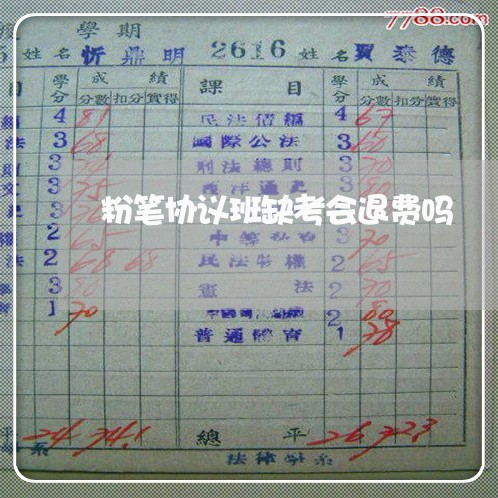 7788.com
學期
姓名 忻鼎明 2616 姓名 賈泰德
目 學分 成績 課目 學分 成績
分數 扣分 實得 分數 扣分 實得
4 81 民法債編 4 67
法 3 68 國際公法 3 60
3 刑法總則 3 70
文 3 75 西洋通史 3 80
粉笔协议班缺考会退费吗
2 65 3 70
法 2 68 68 民法物權 2 65
3 80 憲法 2 70
1 70 2 80
普通體育 1 78
平 24 74.1 總平 26 72.3
系 法律學系